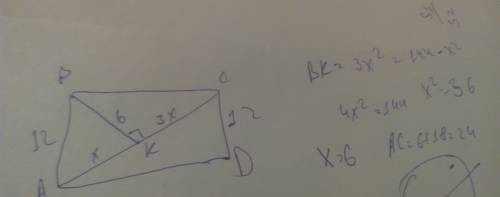 B C
12 6 3x 12
x K
A D
BK = 3x² = 144 - x²
4x² = 144 x² = 36
x = 6 AC = 6+18 = 24